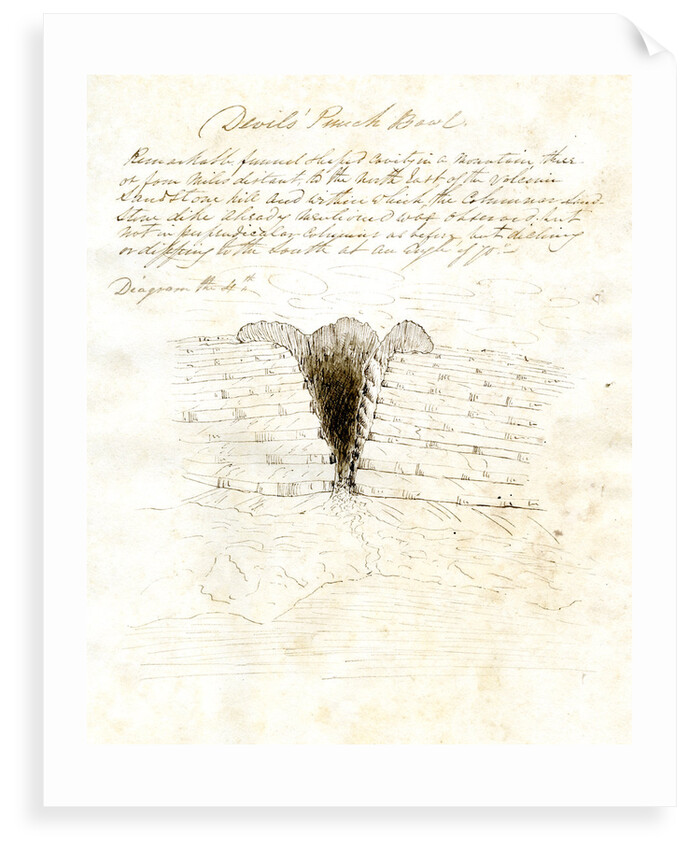 Devils' Punch Bowl.
Remarkable funnel shaped cavity in a Mountain, three
or four Miles distant, to the North East of the Volcanic
Sandstone hill and within which the Columnar Sand-
Stone dike already mentioned was observed, but
not in perpendicular Columns as before but dicling
or dipping to the South at an Angle of 70.—
Diagram the 4th